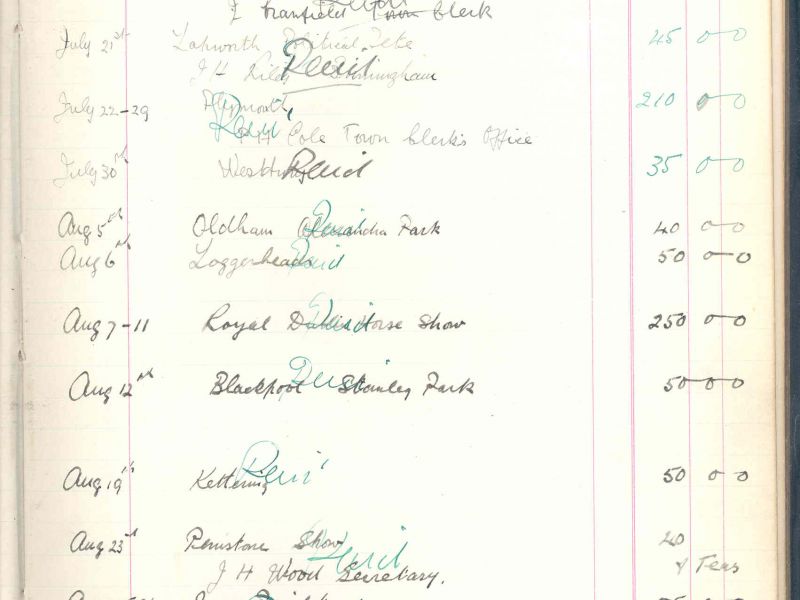 Town Clerk
July 21st Lapworth Political Fete 45 0 0
J H Birmingham
Paid
July 22-29 Plymouth 210 0 0
Paid
Cole Town Clerk's Office
July 30th Paid 35 0 0
Aug 5th Oldham Alexandra Park 40 0 0
Paid
Aug 6th Loggerheads 50 0 0
Paid
Aug 7-11 Royal Dublin Horse Show 250 0 0
Paid
Aug 12th Blackpool Stanley Park 50 0 0
Paid
Aug 19th Kettering 50 0 0
Paid
Aug 23rd Penistone Show 40
Paid & Teas
J H Wood Secretary.